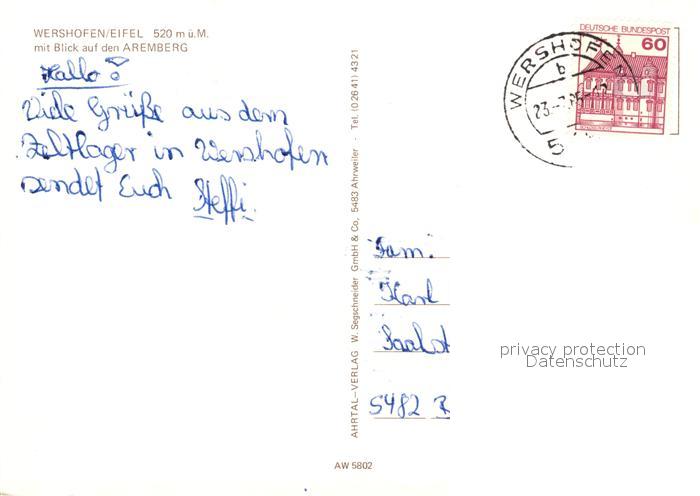 WERSHOFEN/EIFEL 520 m ü.M.
mit Blick auf den AREMBERG
Hallo!
Viele Grüße aus dem
Zeltlager in Wershofen
sendet Euch Steffi.
AHRTAL–VERLAG W. Segschneider GmbH & Co, 5483 Ahrweiler · Tel. (0 26 41) 43 21
AW 5802
DEUTSCHE BUNDESPOST
60
WERSHOFEN
b
23.
5
Fam.
Karl
5482
privacy protection
Datenschutz